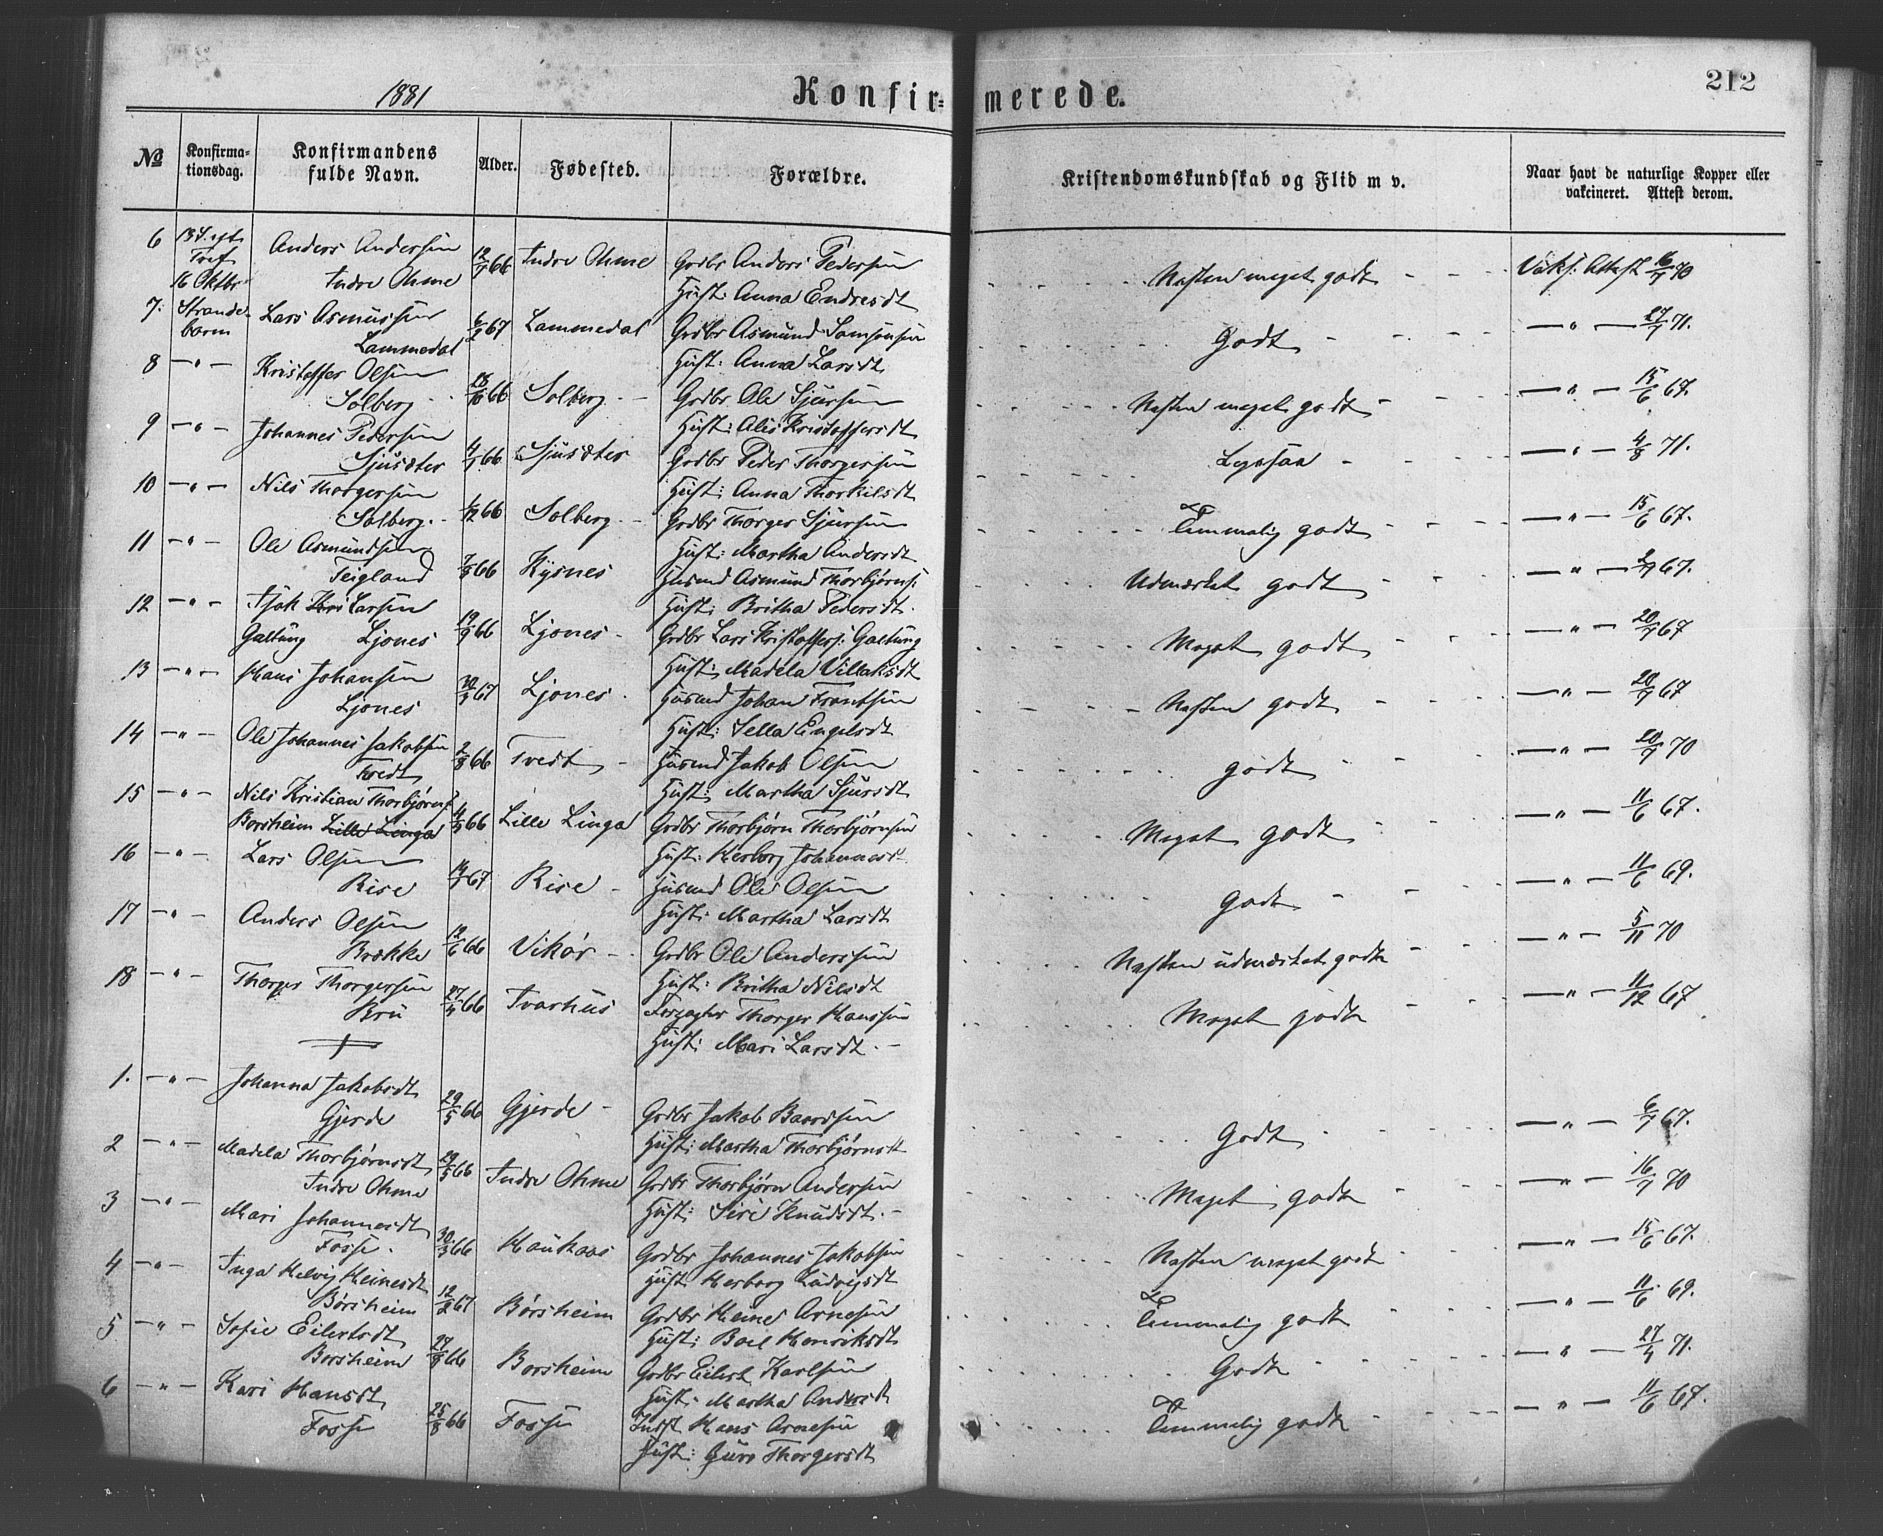 1881
Konfir=
merede.
212
No
Konfirma-
tionsdag.
Konfirmandens
fulde Navn.
Alder.
Fødested.
Forældre.
Kristendomskundskab og Flid m v.
Naar havt de naturlige Kopper eller
vakcineret. Attest derom.
6 13 S. eft. Anders Andersen 12/7 66 Indre Ohme Grdbr Anders Pedersen Næsten meget godt Vaks. Attest 16/7 70
Tref
16 Oktbr Indre Ohme Hust: Anna Endresdt
7. Strande- Lars Asmussen 6/2 67 Lammedal Grdbr Asmund Samsonsen Godt — " — 27/7 71.
barm Lammedal Hust: Anna Larsdt
8 — " — Kristoffer Olsen 18/10 66 Solberg Grdbr Ole Sjursen Næsten meget godt — " — 15/6 67.
Solberg Hust: Alis Kristoffersdt
9 — " — Johannes Pedersen 4/9 66 Sjusæter Grdbr Peder Thorgersen Ligesaa — " — 4/8 71.
Sjusæter Hust: Anna Thorkilsdt
10 — " — Nils Thorgersen 66 Solberg Grdbr Thorger Sjursen Temmelig godt — " — 15/6 67.
Solberg Hust: Martha Andersdt
11 — " — Ole Asmundsen 7/8 66 Kysnes Husmd Asmund Thorbjørns. Udmærket godt — " — 67.
Teigland Hust: Britha Pedersdt.
12 — " — Isak Larsen 19/9 66 Ljones Grdbr Lars Kristoffers. Galtung Meget godt — " — 20/7 67
Galtung Ljones Hust: Madela Villaksdt
13 — " — Hans Johansen 30/3 67 Ljones Husmd Johan Frantsen Næsten godt — " — 20/7 67
Ljones Hust: Sella Engelsdt
14 — " — Ole Johannes Jakobsen 2/8 66 Tvedt Husmd Jakob Olsen godt — " — 20/7 70
Tvedt Hust: Martha Sjursdt
15 — " — Nils Kristian Thorbjørns. 4/9 66 Lille Linga Grdbr Thorbjørn Thorbjørnsen Meget godt — " — 11/6 67.
Borsheim Lille Linga Hust: Herborg Johannesdt
16 — " — Lars Olsen 14/7 67 Rise Husmd Ole Olsen Godt — " — 11/6 69.
Rise Hust: Martha Larsdt
17 — " — Anders Olsen 12/6 66 Vikør Grdbr Ole Anderssen Næsten udmærket godt — " — 5/11 70
Brække Hust: Britha Nilsdt
18 — " — Thorger Thorgersen 27/4 66 Tvarhus Thorger Hanssen Meget godt — " — 11/12 67
Bru Hust: Mari Larsdt.
1. — " — Johanna Jakobsdt 29/5 66 Gjerde Grdbr Jakob Baardsen Godt — " — 6/7 67.
Gjerde Hust: Martha Thorbjørnsdt
2 — " — Madela Thorbjørnsdt 29/5 66 Indre Ohme Grdbr Thorbjørn Andersen Meget godt — " — 16/7 70
Indre Ohme Hust: Siri Knudsdt.
3 — " — Mari Johannesdt 30/3 66 Haukaas Grdbr Johannes Jakobsen Næsten meget godt — " — 15/6 67.
Fosse. Hust: Herborg Ludvigsdt
4 — " — Inga Helvig Heinesdt 12/2 67 Børsheim Grdbr Heine Arnesen Temmelig godt — " — 11/6 69.
Børsheim Hust: Boel Henriksdt
5 — " — Sofie Eilertsdt 27/9 66 Borsheim Grdbr Eilert Karlsen Godt — " — 27/7 71.
Borsheim Hust: Martha Andersdt
6 — " — Kari Hansdt 25/8 66 Fosse Indst Hans Arnesen Temmelig godt — " — 11/6 67.
Fosse Hust: Guro Thorgersdt